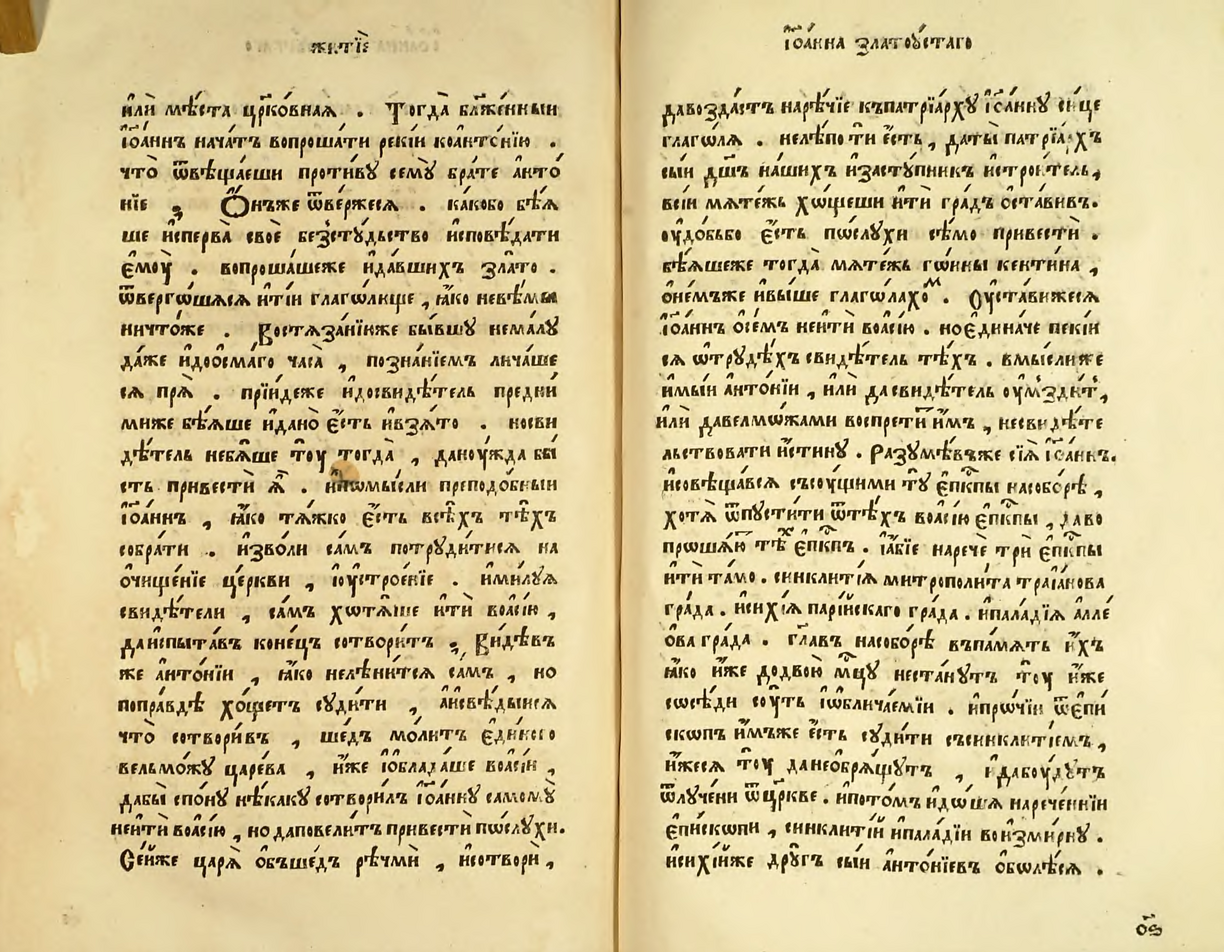 житїѐ
и҆лѝ мѣ́ста цр҃ко́внаѧ . Тогда̀ бл҃же́нныи
і҆ѡ҃а́ннъ нача́тъ вопроша́ти рекі́и коантѡ́нїю .
что̀ ѿвѣщаеши проти́вꙋ семꙋ̀ бра́те анто́
нїе ; О҆́нъже ѿве́ржесѧ . како́бо бѣ́ѧ
ше и҆спе́рва своѐ безстꙋ́дьство и҆сповѣ́дати
е҆моу̀ . вопроша́шеже и҆да́вшихъ зла́то .
ѿве́ргѡшасѧ и҆ті́и глаго́люще , ꙗ҆́ко невѣ́мы
ничто́же . Востѧза́нїюже бы́вшꙋ нема́лꙋ
да́же и҆доо́смаго часа̀ , позна́нїемъ лича́ше
сѧ прѧ̀ . прїи́деже и҆досвидѣ́тель предни́
миже бѣ́ѧше и҆дано̀ є҆́сть и҆взѧ́то . носви
дѣ́тель небѧ́ше тоу̀ тогда̀ , даноу́жда бы́
сть привестѝ ѧ҆̀ . и҆помы́сли преподо́бныи
і҆ѡ҃а́ннъ , ꙗ҆́ко тѧ́жко є҆́сть всѣ́хъ тѣ́хъ
собра́ти . изво́ли са́мъ потрꙋди́тисѧ на
очище́нїе це́ркви , іоустрое́нїе . и҆ми́лꙋѧ
свидѣ́тели , са́мъ хотѧ́ше и҆тѝ воасі́ю ,
даи҆спыта́въ коне́цъ сотвори́тъ ; Ви́дѣвъ
же анто́нїи , ꙗ҆́ко нелѣни́тсѧ са́мъ , но
попра́вдѣ хо́щетъ сꙋди́ти , а҆и҆свѣ́дыисѧ
что̀ сотвори́въ , ше́дъ мо́литъ є҆ди́ного
вельмо́жꙋ царе́ва , и҆́же і҆облада́ше воасі́и ,
дабы̀ спо́нꙋ нѣ́какꙋ сотвори́лъ і҆ѡ҃а́ннꙋ самомꙋ̀
неитѝ воасі́ю , но даповели́тъ привестѝ по́слꙋхи.
Се́иже царѧ̀ обше́дъ рѣчмѝ , и҆сотворѝ ,
і҆ѡ҃а́нна златоу́стаго
давозда́стъ нарѣ́чїе къпатрїа́рхꙋ і҆ѡ҃а́ннꙋ си́це
глаго́лѧ . нелѣ́по ти є҆́сть , даты̀ патрїа́рхъ
сыи дш҃ъ на́шихъ и҆засту́пникъ и҆строи́тель ,
всі́и мѧте́жь хо́щеши и҆тѝ гра́дъ оста́вивъ.
оудо́бьбо є҆́сть по́слꙋхи сѣ́мо привестѝ .
бѣ́ѧшеже тогда̀ мѧте́жь го́ины кентина ,
оне́мъже и҆вы́ше глаго́лахоⷨ . Оу҆ста́вижесѧ
і҆ѡ҃а́ннъ осе́мъ неитѝ воасі́ю . ноє҆ди́наче пекі́и
сѧ ѡ҆трꙋ́дѣхъ свидѣ́тель тѣ́хъ . вмы́слиже
и҆мы́и анто́нїи , и҆лѝ дасвидѣ́тель оумзди́тъ ,
и҆лѝ давелмо́жами воспрети́тъ и҆́мъ , несвидѣ́те
льствовати и҆́стинꙋ . Разꙋмѣ́въже сїѧ̀ і҆ѡ҃а́ннъ.
и҆совѣща́всѧ съсоу́щими тꙋ̀ є҆пкⷭ҇пы насобо́рѣ ,
хотѧ̀ ѿпꙋсти́ти ѿтѣ́хъ воасі́ю є҆пкⷭ҇пы , даво
проша́ютъ тѣⷯ є҆пкⷭ҇пъ . і҆а́бїе наречѐ трѝ є҆пкⷭ҇пы
и҆тѝ та́мо . синкли́тїѧ митрополи́та траїа́нова
гра́да . и҆си́хїѧ парі́йскаго гра́да . и҆пала́дїѧ алле́
ѡва гра́да . гла́въ насобо́рѣ впа́мѧть и҆́хъ
ꙗ҆́ко и҆́же додвою̀ мцⷭ҇ꙋ неста́нꙋтъ тоу̀ и҆́же
сосѣ́ди соу́ть і҆ѡблича́еміи . и҆про́чїи ѿє҆пи
скопъ и҆́мъже є҆́сть сꙋди́ти съсинкли́тїемъ ,
и҆́жесѧ тоу̀ данеобрѧ́щꙋтъ , и҆дабоу́дꙋтъ
ѿлꙋче́ни ѿцр҃кве . и҆пото́мъ и҆до́ша нарече́ннїи
є҆пи́скопи , синкли́тїи и҆пала́дїи воизми́рнꙋ .
и҆си́хїиже дрꙋ́гъ сыи анто́нїевъ оболѣ́сѧ .
о҃ѕ